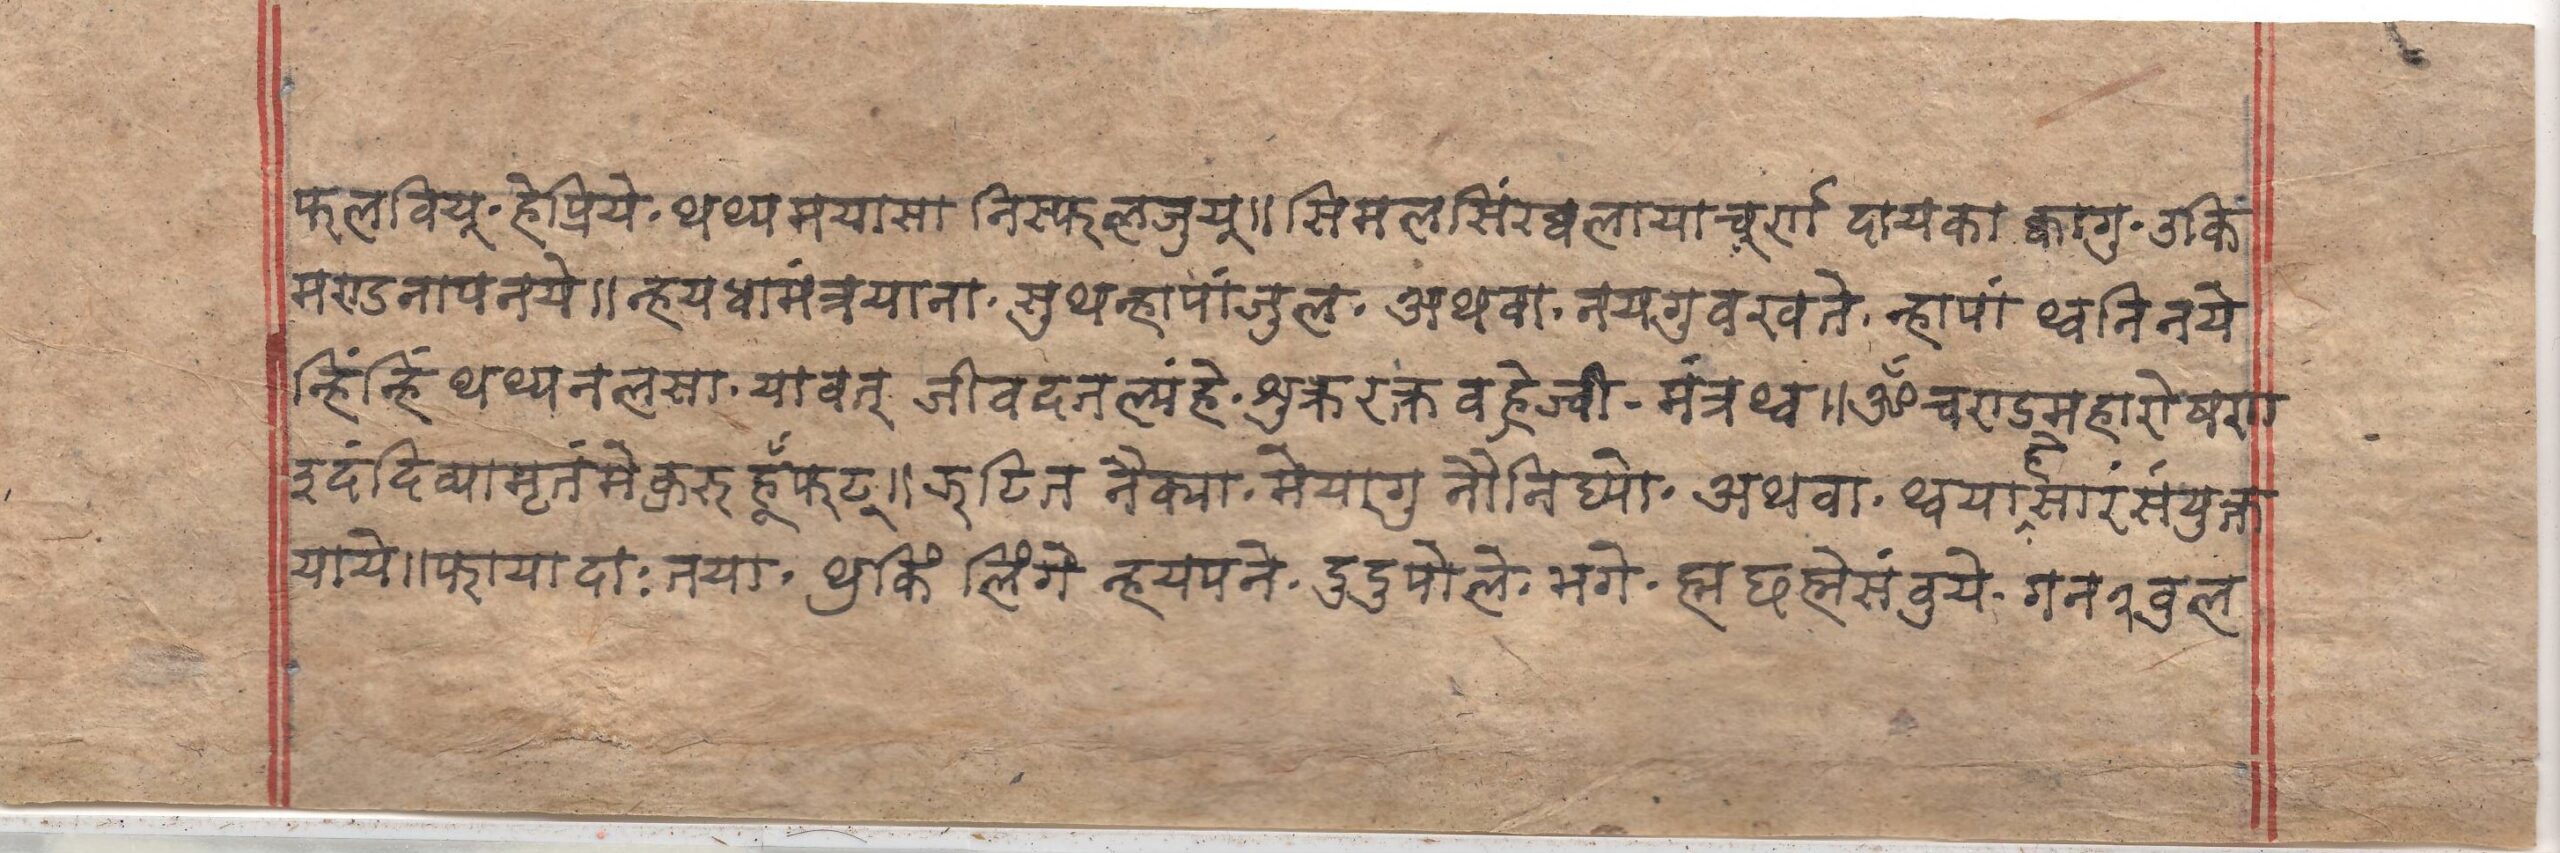 फलवियू· हेप्रिये· थथ्यमयासा निस्फलजुयू॥ सिमलसिंरब्वलायाचूर्ण दायका क्वागु· उकिं
मण्डनापनये॥ न्हयधामंत्रयाना· सुथन्हापांजुल· अथवा· नयगुवखते· न्हापां थ्वनिनये
न्हिंन्हिं थथ्यनलसा· यावत् जीवदतल्यंहे· शुक्ररक्त वहेज्वी - मंत्रथ्व॥ ॐ चण्डमहारोषण
इदंदिव्यामृतंमेकुरुहूँफट्॥ झटित नैक्या· मेयागु नौनिघ्यो· अथवा· थ्वयाहे सारंसंयुक्त
याये॥ फायादाः तया· थुकिं लिंगे न्हयपने· दुदुपोले· भगे· ह्मछह्मेसंवुये· गनखुल